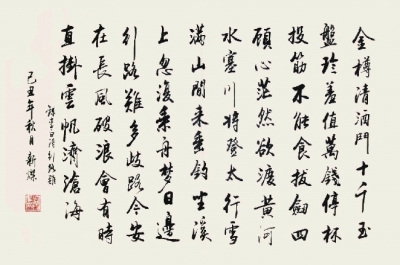 金樽清酒鬥十千玉
盤珍羞值萬錢停杯
投筯不能食拔劍四
顧心茫然欲渡黃河
冰塞川將登太行雪
滿山閒來垂釣坐溪
上忽復乘舟夢日邊
行路難多歧路今安
在長風破浪會有時
直掛雲帆濟滄海
錄李白詩行路難
己丑年秋月新